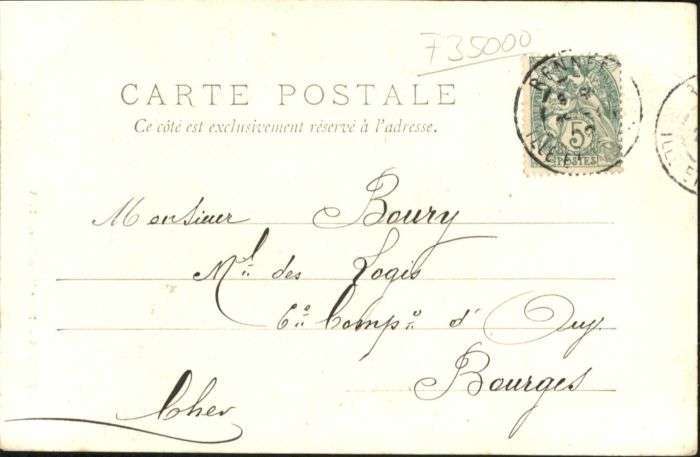 735000
CARTE POSTALE
Ce côté est exclusivement réservé à l'adresse.
RENNES
ILLE ET
5
POSTES
ILLE
Monsieur Boury
Mal des Logis
6e Compie d'Ouv
Bourges
Cher